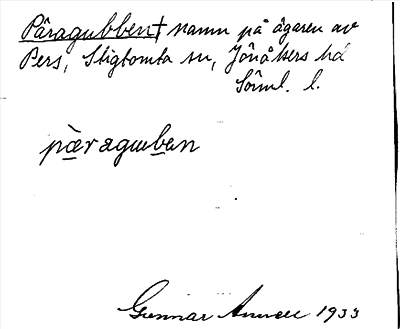 Päragubben† namn på ägaren av
Pers, Stigtomta sn, Jönåkers hd
Sörml. l.
pæragɯban
Gunnar 1933